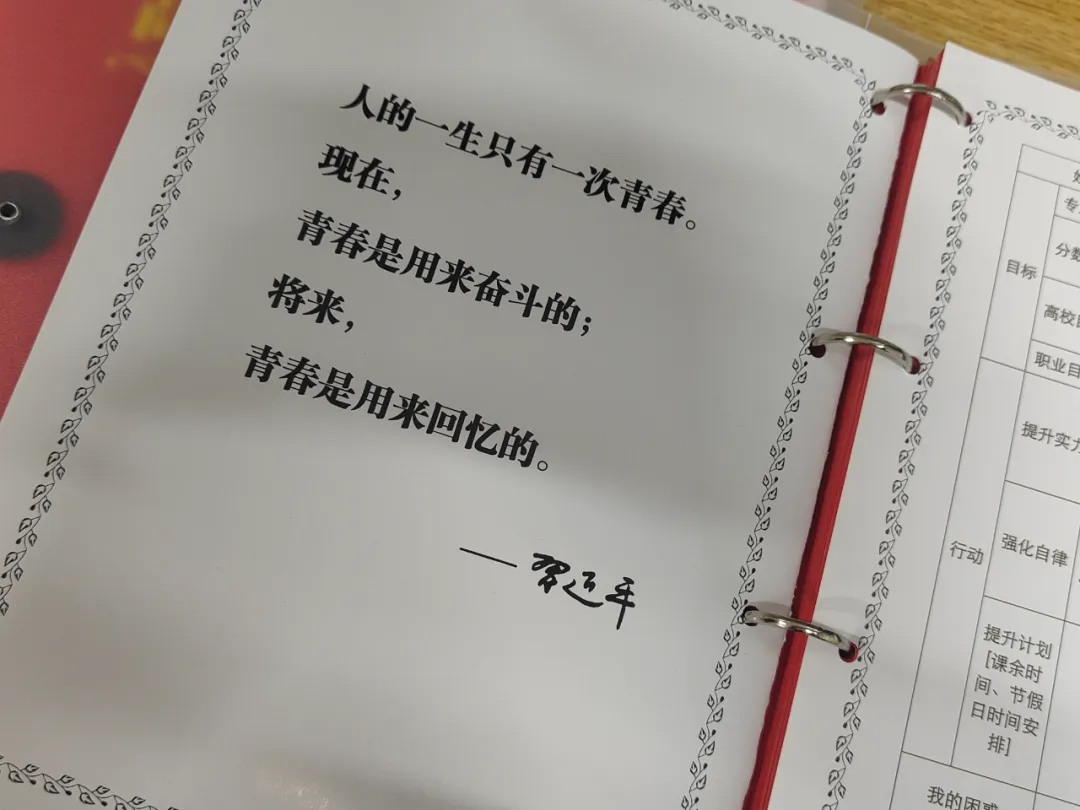 人的一生只有一次青春。
现在，
青春是用来奋斗的；
将来，
青春是用来回忆的。
——习近平
目标
专
分数
高校
职业目
行动
提升实力
强化自律
提升计划
[课余时
间、节假
日时间安
排]
我的困惑